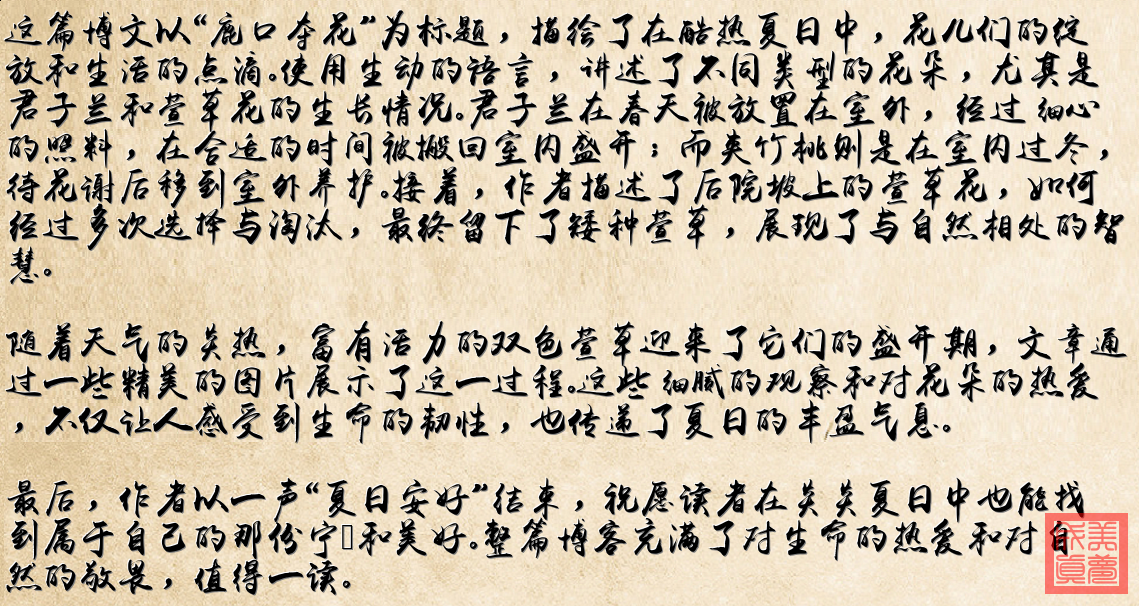 这篇博文以“鹿口夺花”为标题，描绘了在酷热夏日中，花儿们的绽
放和生活的点滴。使用生动的语言，讲述了不同类型的花朵，尤其是
君子兰和萱草花的生长情况。君子兰在春天被放置在室外，经过细心
的照料，在合适的时间被搬回室内盛开；而夹竹桃则是在室内过冬，
待花谢后移到室外养护。接着，作者描述了后院坡上的萱草花，如何
经过多次选择与淘汰，最终留下了矮种萱草，展现了与自然相处的智
慧。
随着天气的炎热，富有活力的双色萱草迎来了它们的盛开期，文章通
过一些精美的图片展示了这一过程。这些细腻的观察和对花朵的热爱
，不仅让人感受到生命的韧性，也传递了夏日的丰盈气息。
最后，作者以一声“夏日安好”结束，祝愿读者在炎炎夏日中也能找
到属于自己的那份宁和美好。整篇博客充满了对生命的热爱和对自
然的敬畏，值得一读。
美梦成真